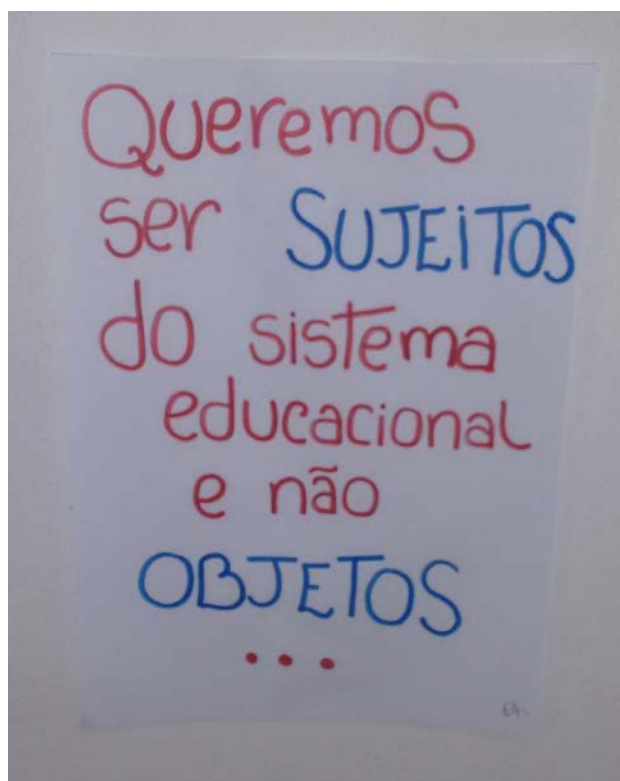 Queremos
ser SUJEITOS
do sistema
educacional
e não
OBJETOS
...